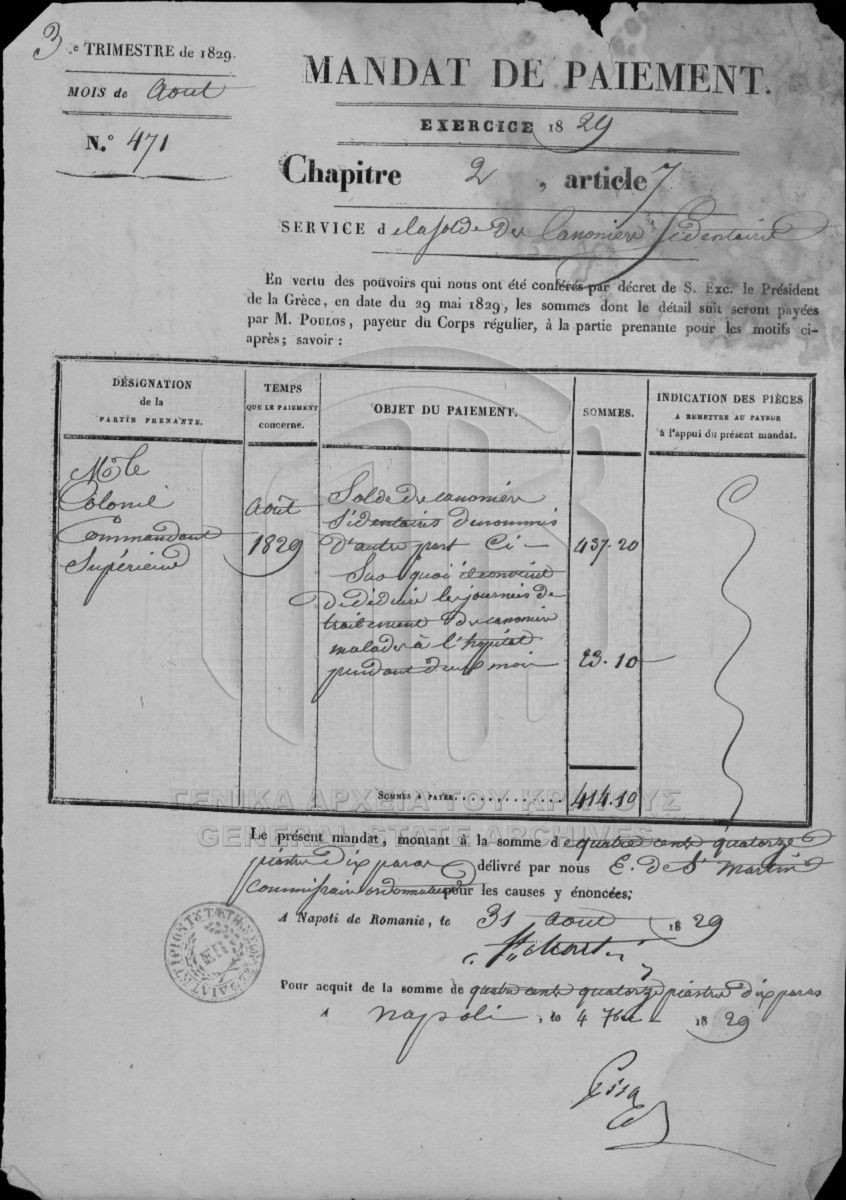 3e TRIMESTRE de 1829.
MOIS de Aout
N.° 471
MANDAT DE PAIEMENT.
EXERCICE 1829
Chapitre 2, article 7
SERVICE de la solde des Canoniers Sédentaires
En vertu des pouvoirs qui nous ont été conférés par décret de S. Exc. le Président
de la Grèce, en date du 29 mai 1829, les sommes dont le détail suit seront payées
par M. POULOS, payeur du Corps régulier, à la partie prenante pour les motifs ci-
après; savoir :
DÉSIGNATION
de la
PARTIE PRENANTE.
TEMPS
QUE LE PAIEMENT
concerne.
OBJET DU PAIEMENT.
SOMMES.
INDICATION DES PIÈCES
A REMETTRE AU PAYEUR
à l'appui du présent mandat.
Mr le
Colonel
Commandant
Supérieur
Août
1829
Solde des canoniers
Sédentaires dénommés
d'autre part Ci — 437.20
Sur quoi il convient
de déduire les journées de
traitement des canoniers
malades à l'hôpital
pendant deux mois 23.10
SOMMES A PAYER............ 414.10
ΓΕΝΙΚΑ ΑΡΧΕΙΑ ΤΟΥ ΚΡΑΤΟΥΣ
GENERAL STATE ARCHIVES
Le présent mandat, montant à la somme de quatre cents quatorze
piastres dix paras délivré par nous E. de St Martin
Commissaire ordonnateur pour les causes y énoncées;
A Napoli de Romanie, le 31 aout 1829
Pour acquit de la somme de quatre cents quatorze piastres dix paras
A napoli, le 4 7bre 1829